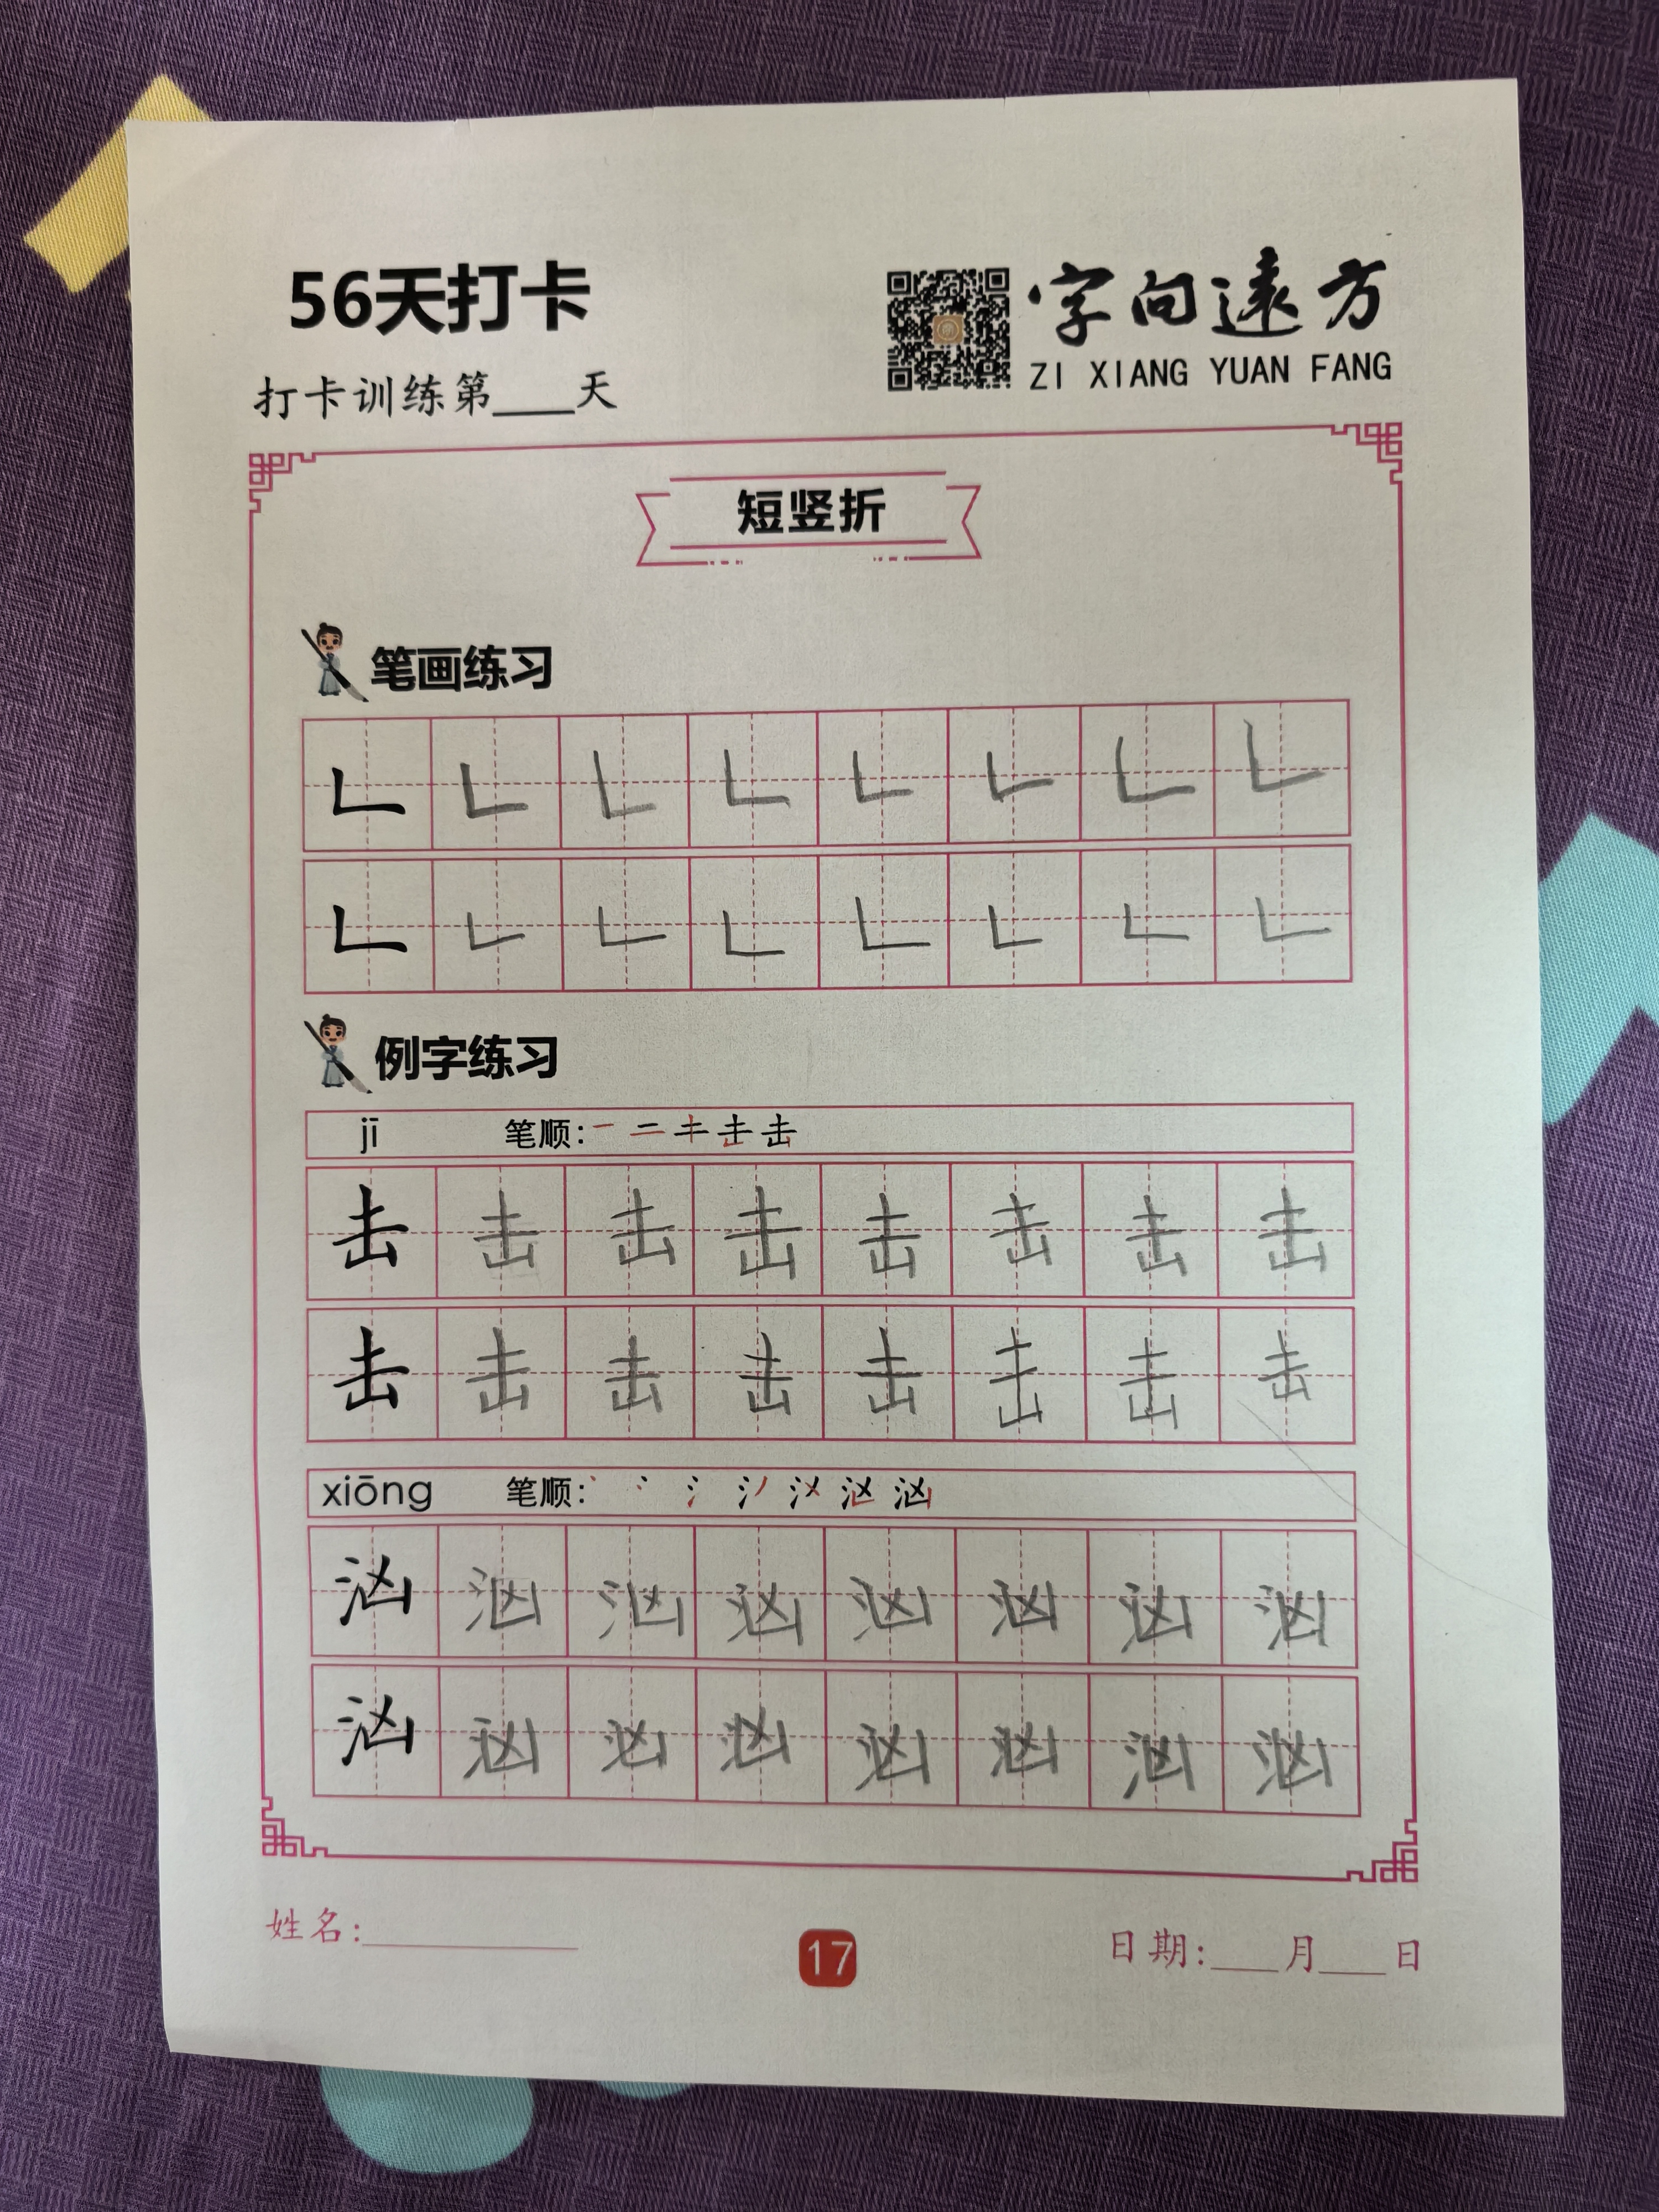 56天打卡
字向遠方
ZI XIANG YUAN FANG
打卡训练第____天
短竖折
笔画练习
𠃊 𠃊 𠃊 𠃊 𠃊 𠃊 𠃊 𠃊
𠃊 𠃊 𠃊 𠃊 𠃊 𠃊 𠃊 𠃊
例字练习
jī 笔顺:
击 击 击 击 击 击 击 击
击 击 击 击 击 击 击 击
xiōng 笔顺:
汹 汹 汹 汹 汹 汹 汹 汹
汹 汹 汹 汹 汹 汹 汹 汹
姓名:________
17
日期:___月___日